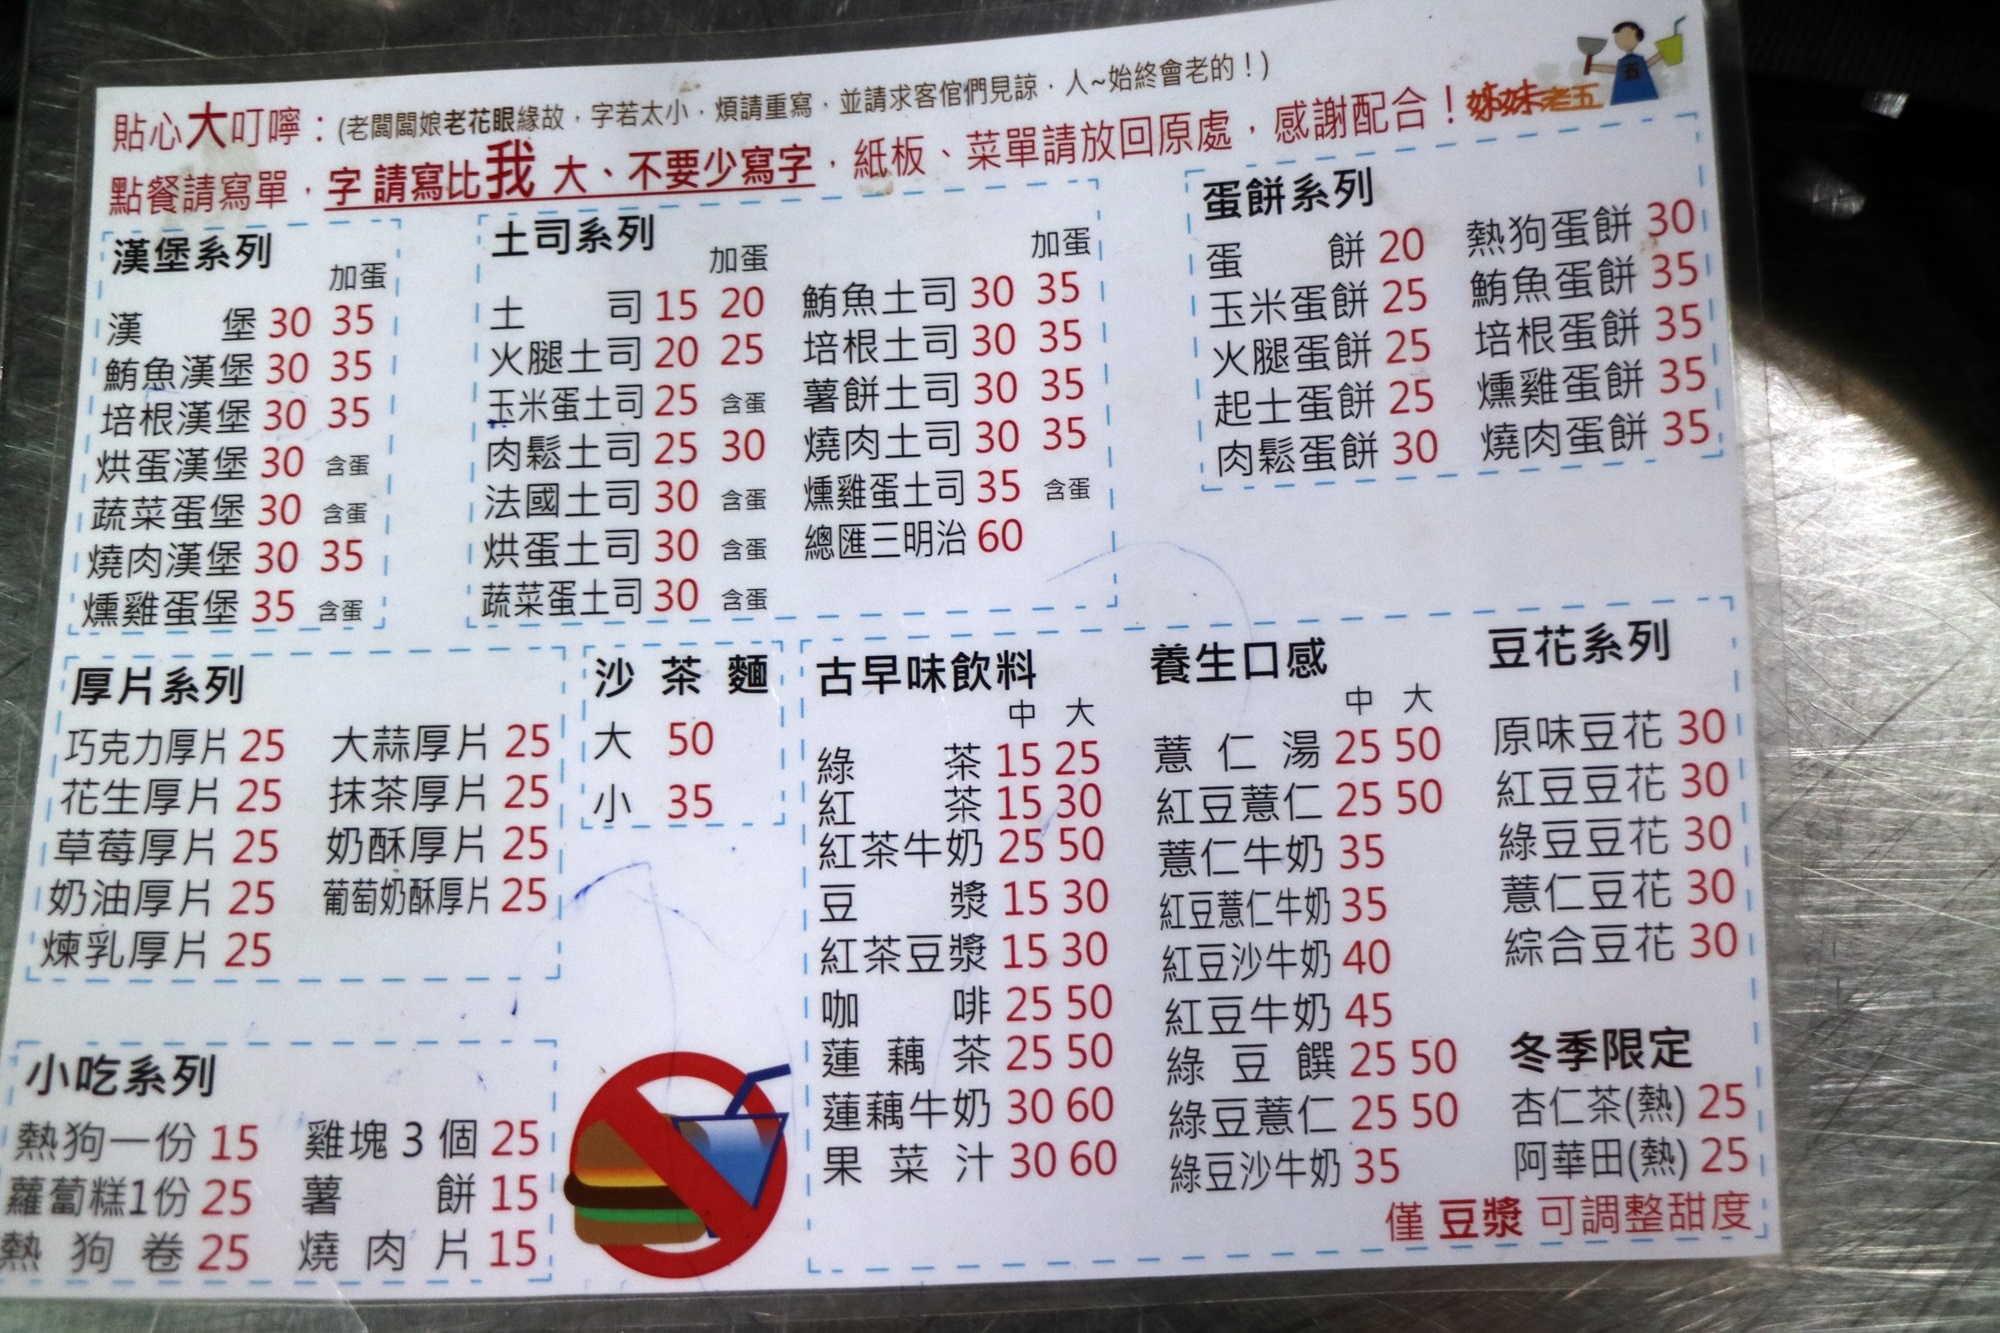 貼心大叮嚀：(老闆闆娘老花眼緣故，字若太小，煩請重寫，並請求客倌們見諒，人~始終會老的！)
點餐請寫單，字 請寫比我 大、不要少寫字，紙板、菜單請放回原處，感謝配合！姊妹老五
五
漢堡系列
加蛋
漢堡 30 35
鮪魚漢堡 30 35
培根漢堡 30 35
烘蛋漢堡 30 含蛋
蔬菜蛋堡 30 含蛋
燒肉漢堡 30 35
燻雞蛋堡 35 含蛋
土司系列
加蛋
土司 15 20
火腿土司 20 25
玉米蛋土司 25 含蛋
肉鬆土司 25 30
法國土司 30 含蛋
烘蛋土司 30 含蛋
蔬菜蛋土司 30 含蛋
加蛋
鮪魚土司 30 35
培根土司 30 35
薯餅土司 30 35
燒肉土司 30 35
燻雞蛋土司 35 含蛋
總匯三明治 60
蛋餅系列
蛋餅 20
玉米蛋餅 25
火腿蛋餅 25
起士蛋餅 25
肉鬆蛋餅 30
熱狗蛋餅 30
鮪魚蛋餅 35
培根蛋餅 35
燻雞蛋餅 35
燒肉蛋餅 35
厚片系列
巧克力厚片 25
花生厚片 25
草莓厚片 25
奶油厚片 25
煉乳厚片 25
大蒜厚片 25
抹茶厚片 25
奶酥厚片 25
葡萄奶酥厚片 25
沙茶麵
大 50
小 35
古早味飲料
中 大
綠茶 15 25
紅茶 15 30
紅茶牛奶 25 50
豆漿 15 30
紅茶豆漿 15 30
咖啡 25 50
蓮藕茶 25 50
蓮藕牛奶 30 60
果菜汁 30 60
養生口感
中 大
薏仁湯 25 50
紅豆薏仁 25 50
薏仁牛奶 35
紅豆薏仁牛奶 35
紅豆沙牛奶 40
紅豆牛奶 45
綠豆饌 25 50
綠豆薏仁 25 50
綠豆沙牛奶 35
豆花系列
原味豆花 30
紅豆豆花 30
綠豆豆花 30
薏仁豆花 30
綜合豆花 30
冬季限定
杏仁茶(熱) 25
阿華田(熱) 25
僅 豆漿 可調整甜度
小吃系列
熱狗一份 15
蘿蔔糕1份 25
熱狗卷 25
雞塊3個 25
薯餅 15
燒肉片 15